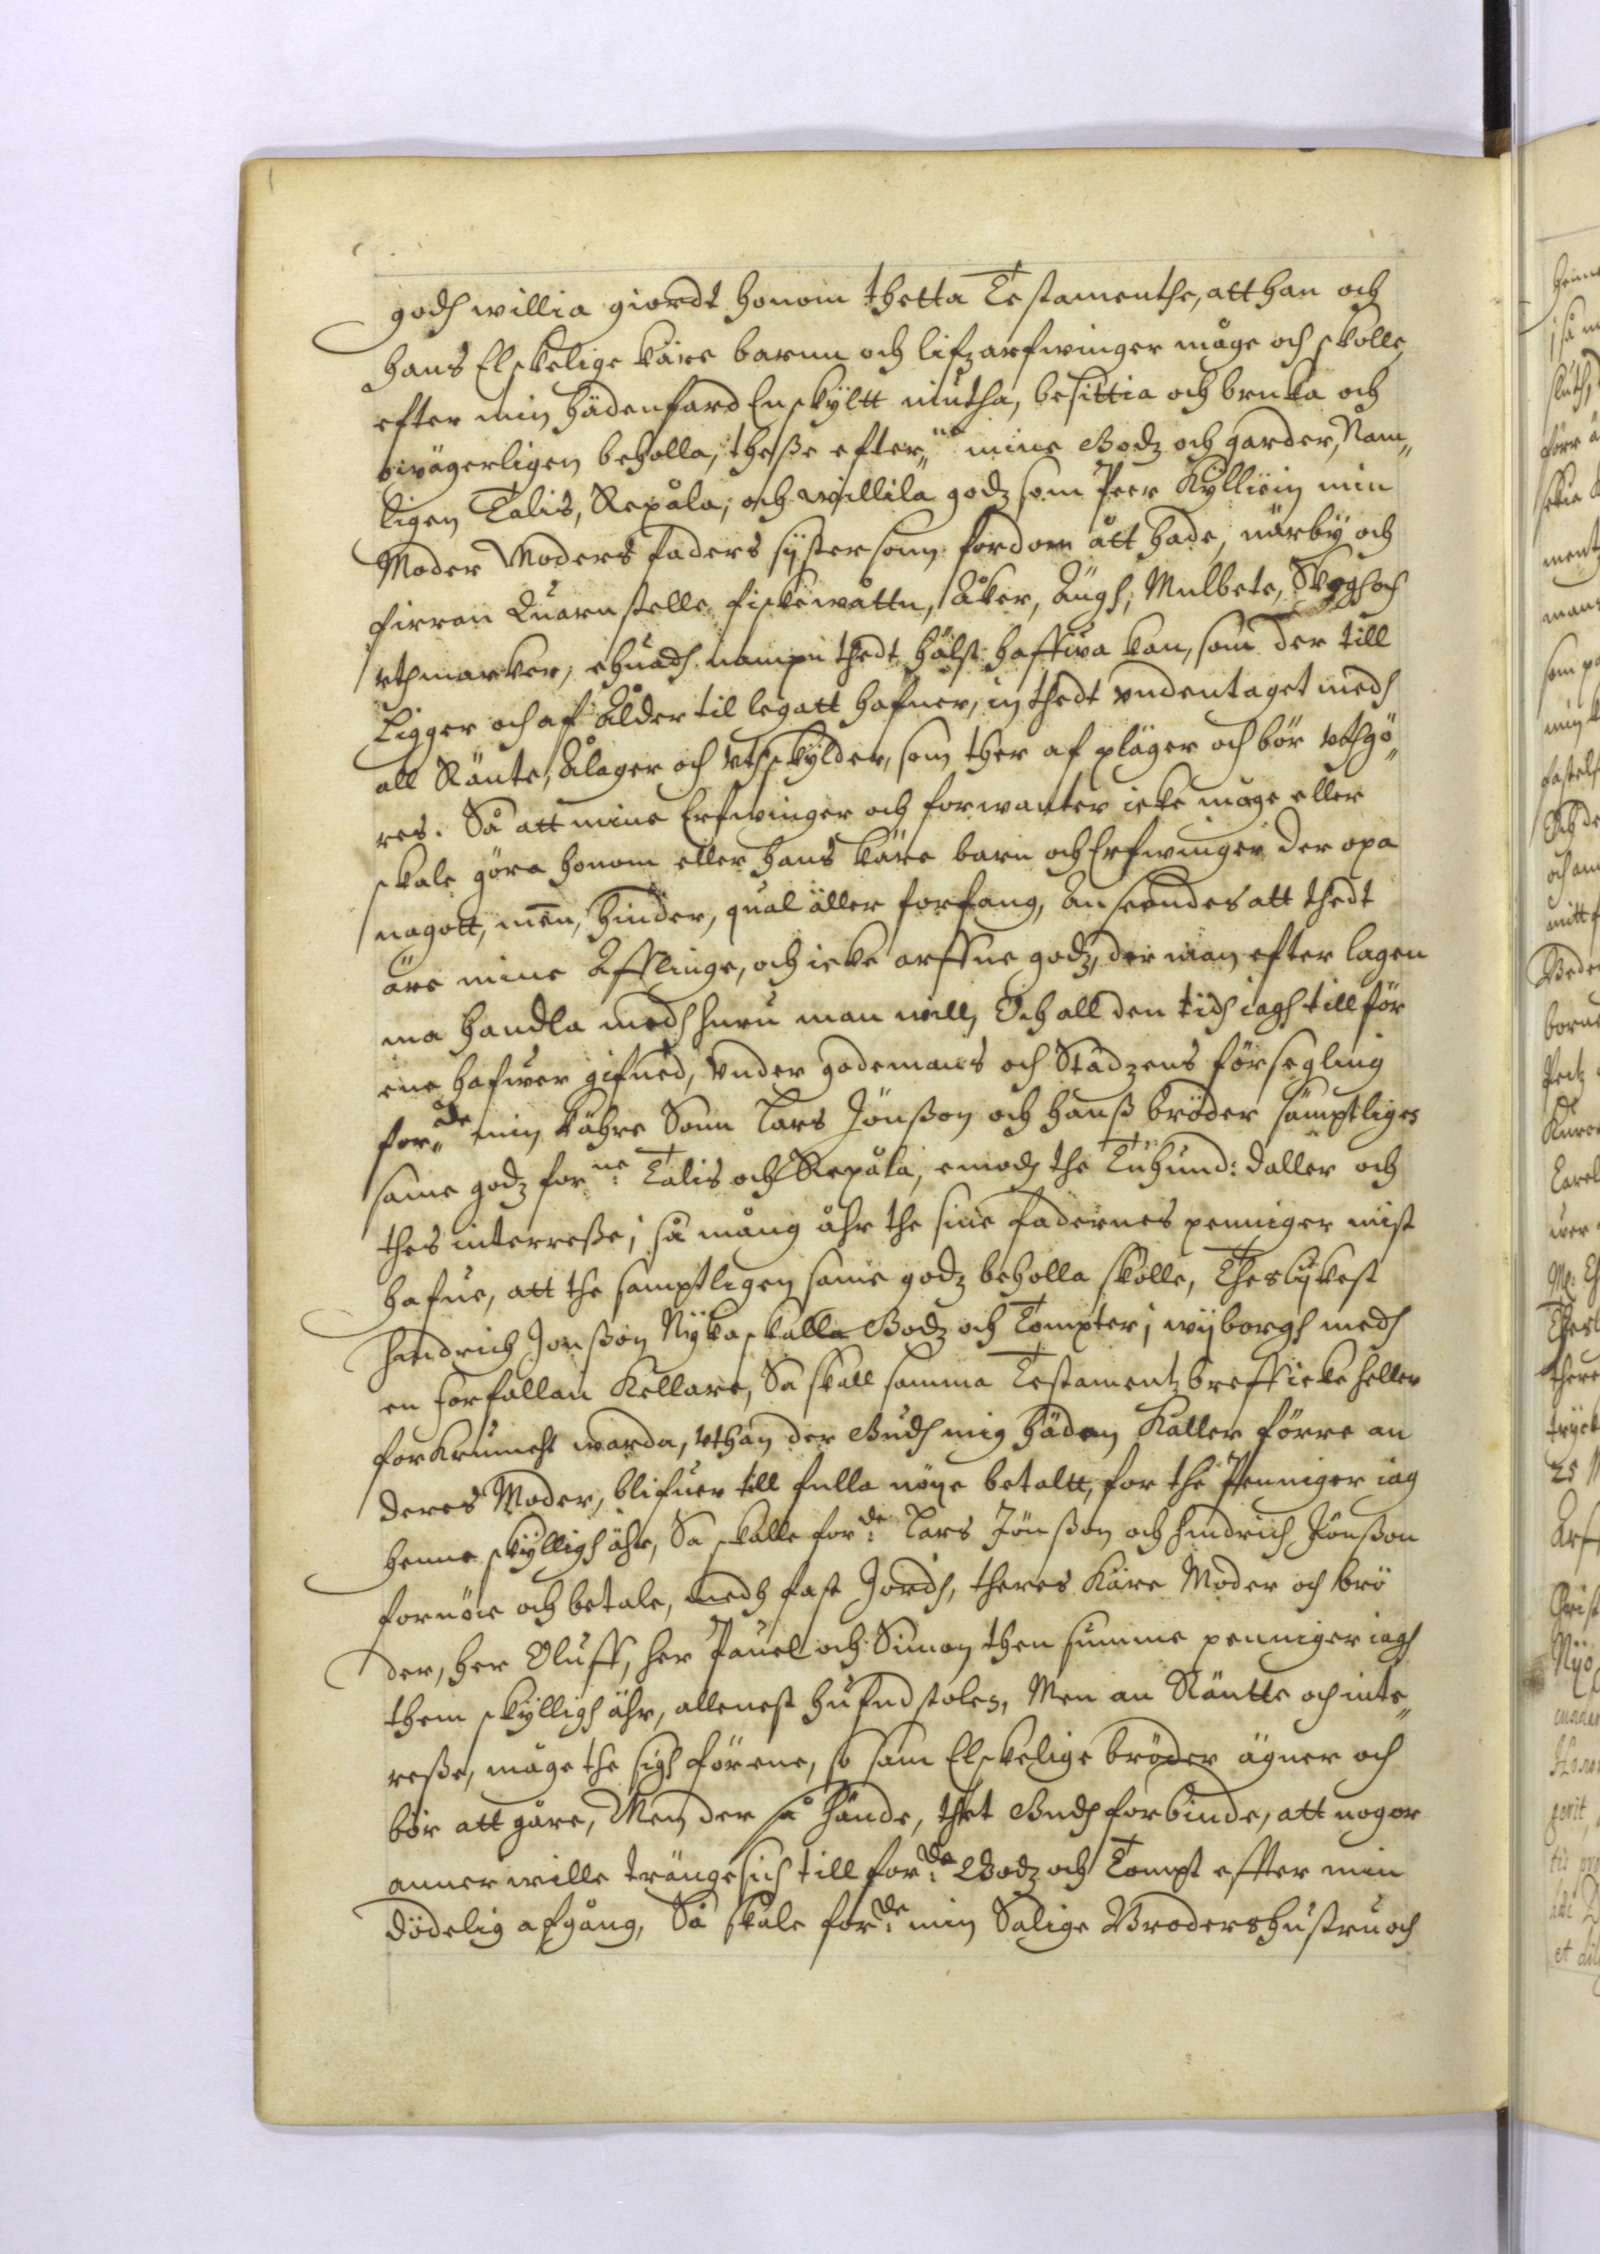 godh willia giordt honom thetta Testamenthe, att han och
hans Elskelige käre barnn och lifzarfwinger måge och skolle
efter min hädenfard Enskÿltt niutha, besittia och bruka och
owägerligen beholla, theße efter„ne mine Godz och garder, Nam„
ligen Talis, Repåla, och Willila godz som Peer Kÿlliein min
Moder Moders faders sÿsterson fordom ått hade, närbÿ och
firran Quarnstelle fiskewattn, Åker, Ängh, Mulbete, Skogh och
vthmarker, ehuadh nampn thedt hälst haffwa kan, som der till
Ligger och af Ålder til legatt hafuer, inthedt vndentaget medh
all Ränte, Ålager och Vthskÿlder, som ther af pläger och bör vthgö„
res. Så att mine Erfwinger och forwanter icke måge eller
skale göra honom eller hans käre barn och Erfwinger der opa
nagott, mēn, hinder, qual äller forfang, Anseendes att thedt
äre mine Afflinge, och icke arffue godz, der man efter lagen
ma handla medh huru man will, Och all den tidh iagh tillför
ene hafwer gifued, vnder godemans och Stadzens försegling
for„de min kähre Sonn Lars Jönßon och hanß bröder sämptliges
same godz forne: Talis och Repåla, emodh the Tuhund: daller och
thes interreße, så mång åhr the sine fadernes penniger mist
hafue, att the samptligen same godz beholla skolle, Theslÿkest
Hindrich Jonßon Nÿkaskalla Godz och Tompter i wÿborgh medh
en forfallan Kellare, Så skall samma Testamentz breff icke heller
forkrunckt warda, vthan der Gudh mig häden Kaller förre an
deres Moder, blifuer till fulla nöÿe betaltt, for the Penniger iag
henne skÿlligh ähr, Sa skalle forde: Lars Jönßon och Hindrich Jönßon
fornöie och betale, medh fast Jordh, theres Käre Moder och brö
der, her Oluff, her Pauel och Simon then summe penniger iagh
them skÿlligh ähr, allenest hufudstolen, Men an Räntte och inte„
reße, måge the sigh förene, so som Elskelige bröder ägner och
bör att gåre, Men der så hände, thet Gudh forbinde, att nogor
anner wille tränge sich till forde: Godz och Tompt effter min
dödelig afgång, Så skale forde: min Salige Broders hustru och